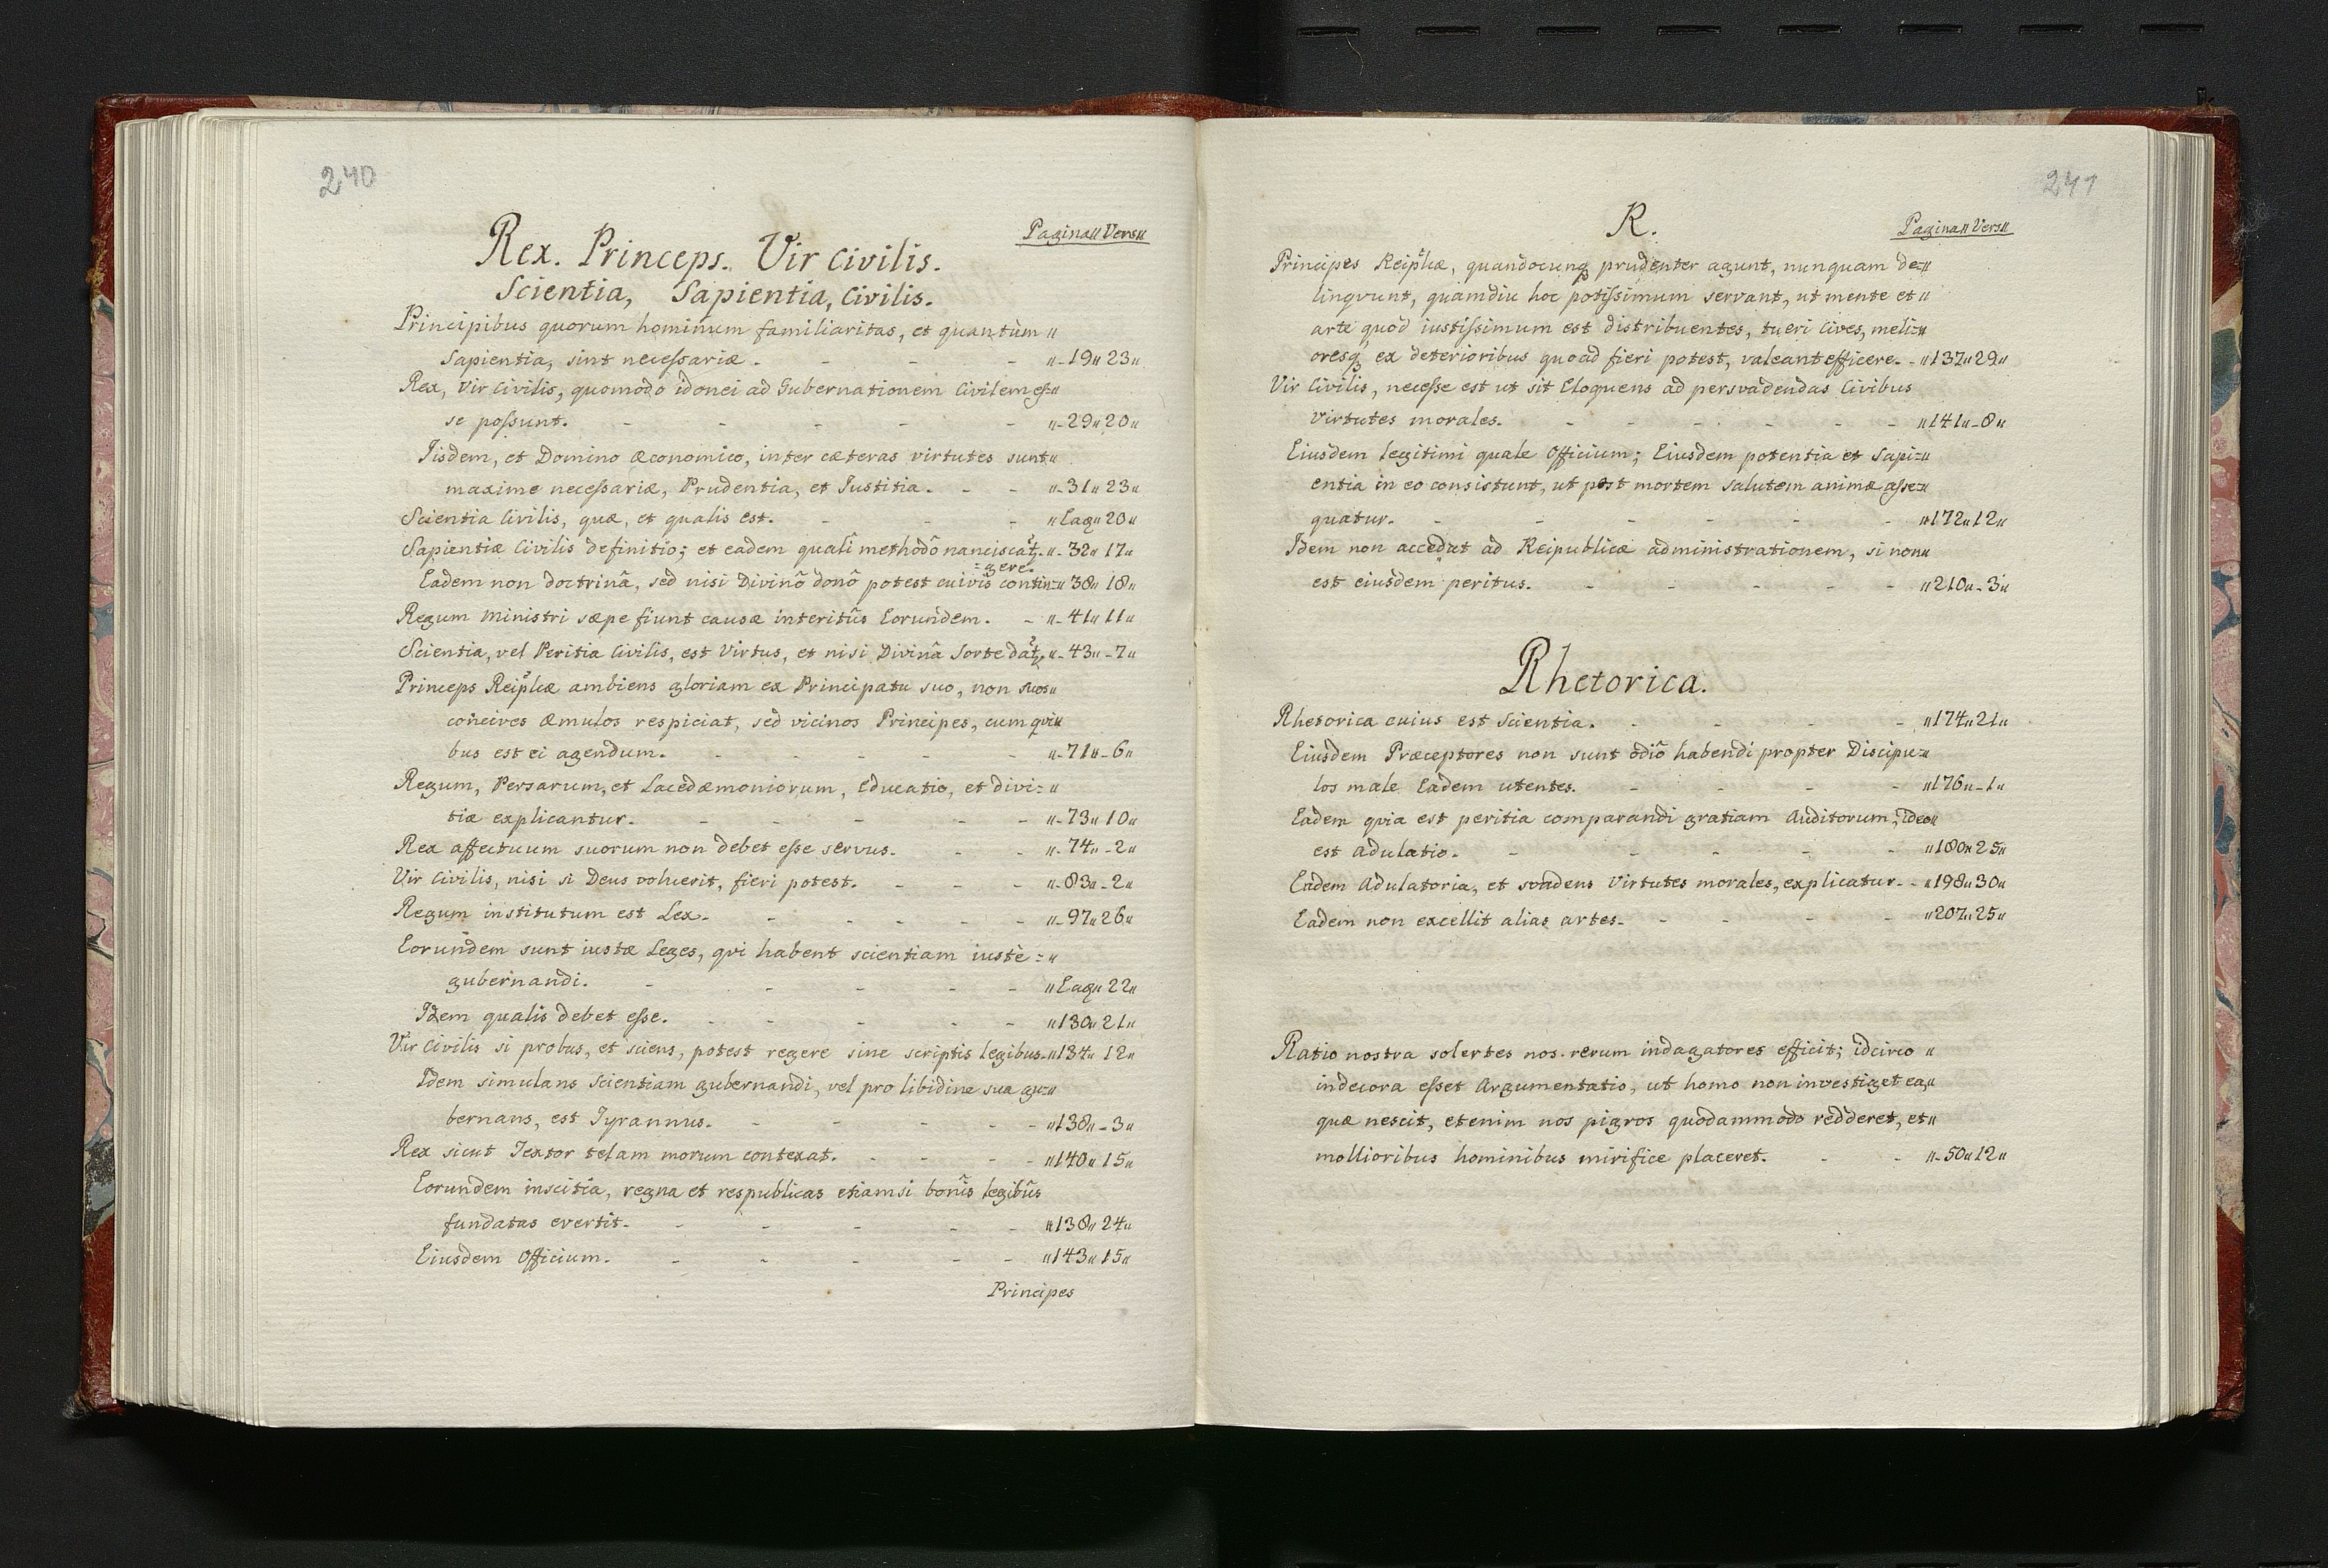 240
Pagina〃Vers〃
Rex. Princeps. Vir Civilis.
Scientia, Sapientia, Civilis.
Principibus quorum hominum familiaritas, et quantùm〃
Sapientia, sint necessariæ. - - - 〃-19〃23〃
Rex, Vir Civilis, quomodo idonei ad Gubernationem Civilem es=〃
se possunt. - - - - - 〃-29〃20〃
Iisdem, et Domino æconomico, inter cæteras virtutes sunt〃
maxime necessariæ, Prudentia, et Iustitia. - - 〃-31〃23〃
Scientia Civilis, quæ, et qualis est. - - - 〃Eaq〃20〃
Sapientiæ Civilis definitio; et eadem quali methodô nanciscat̃.〃-32〃17〃
=gere.
Eadem non doctrinâ, sed nisi Divinô donô potest cuivis contin=〃38〃18〃
Regum Ministri sæpe fiunt causæ interitûs Eorundem. - 〃-41〃11〃
Scientia, vel Peritia Civilis, est Virtus, et nisi Divinâ Sorte dat̃.〃-43〃-7〃
Princeps Reip̃licæ ambiens gloriam ex Principatu suo, non suos〃
concives æmulos respiciat, sed vicinos Principes, cum qvi〃
bus est ei agendum. - - - - 〃-71〃-6〃
Regum, Persarum, et Lacedæmoniorum, Educatio, et divi=〃
tiæ explicantur. - - - - - 〃-73〃10〃
Rex affectuum suorum non debet esse servus. - - 〃-74〃-2〃
Vir Civilis, nisi si Deus voluerit, fieri potest. - - - 〃-83〃-2〃
Regum institutum est Lex. - - - - - 〃-97〃26〃
Eorundem sunt iustæ Leges, qvi habent scientiam iustè=〃
gubernandi. - - - - - 〃Eaq〃22〃
Idem qualis debet esse. - - - - - 〃130〃21〃
Vir Civilis si probus, et sciens, potest regere sine scriptis legibus.〃134〃12〃
Idem simulans Scientiam gubernandi, vel pro libidine sua gu=〃
bernans, est Tyrannus. - - - - - 〃138〃-3〃
Rex sicut Textor telam morum contexat. - - - - 〃140〃15〃
Eorundem inscitia, regna et respublicas etiamsi bonîs legibûs
fundatas evertit. - - - - - 〃138〃24〃
Eiusdem Officium. - - - - - 〃143〃15〃
Principes
241
R.
Pagina〃Vers〃
Principes Reip̃licæ, quandocunq́ꝫ prudenter agunt, nunquam de=〃
linqvunt, quamdiu hoc potissimum servant, ut mente et〃
arte quod iustissimum est distribuentes, tueri Cives, meli=〃
oresq́ꝫ ex deterioribus quoad fieri potest, valeant efficere. -〃137〃29〃
Vir Civilis, necesse est ut sit Eloquens ad persvadendas Civibus
Virtutes morales. - - - - - - 〃141〃-8〃
Eiusdem legitimi quale Officium; Eiusdem potentia et Sapi=〃
entia in eo consistunt, ut post mortem Salutem animæ asse=〃
quatur. - - - - - - 〃172〃12〃
Idem non accedat ad Reipublicæ administrationem, si non〃
est eiusdem peritus. - - - - - 〃210〃-3〃
Rhetorica.
Rhetorica cuius est Scientia. - - - - 〃174〃21〃
Eiusdem Præceptores non sunt odiô habendi propter Discipu=〃
los male Eadem utentes. - - - - 〃176〃-1〃
Eadem qvia est peritia comparandi gratiam Auditorum, ideo〃
est Adulatio. - - - - - - 〃180〃25〃
Eadem Adulatoria, et svadens Virtutes morales, explicatur. -〃198〃30〃
Eadem non excellit alias artes. - - - - 〃207〃25〃
Ratio nostra solertes nos rerum indagatores efficit; idcirco〃
indecora esset Argumentatio, ut homo non investiget ea〃
quæ nescit, etenim nos pigros quodammodo redderet, et〃
mollioribus hominibus mirifice placeret. - - 〃-50〃12〃